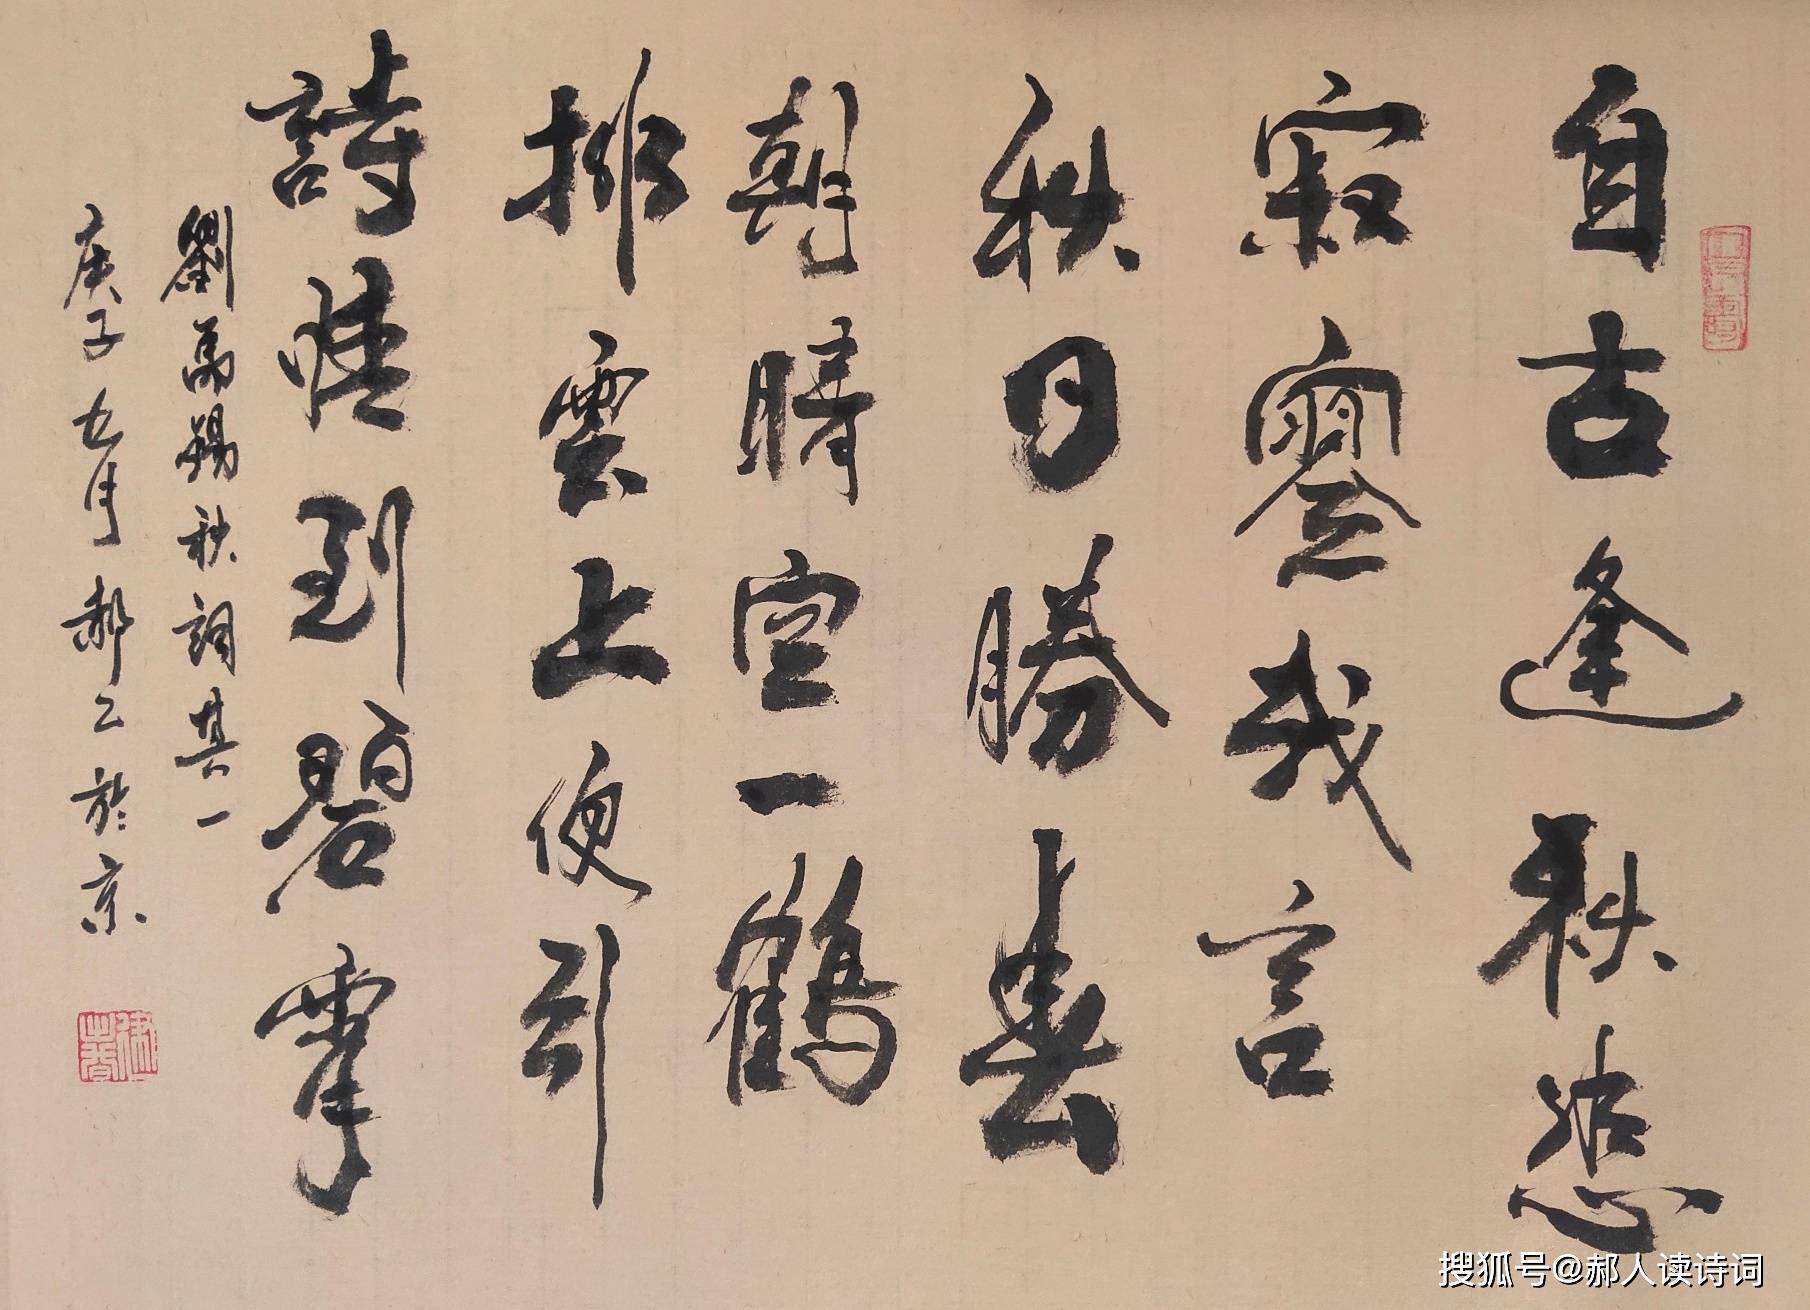 自古逢秋悲
寂寥我言
秋日勝春
朝晴空一鶴
排雲上便引
詩情到碧霄
劉禹錫秋詞其一
庚子九月郝工於京
搜狐号@郝人读诗词